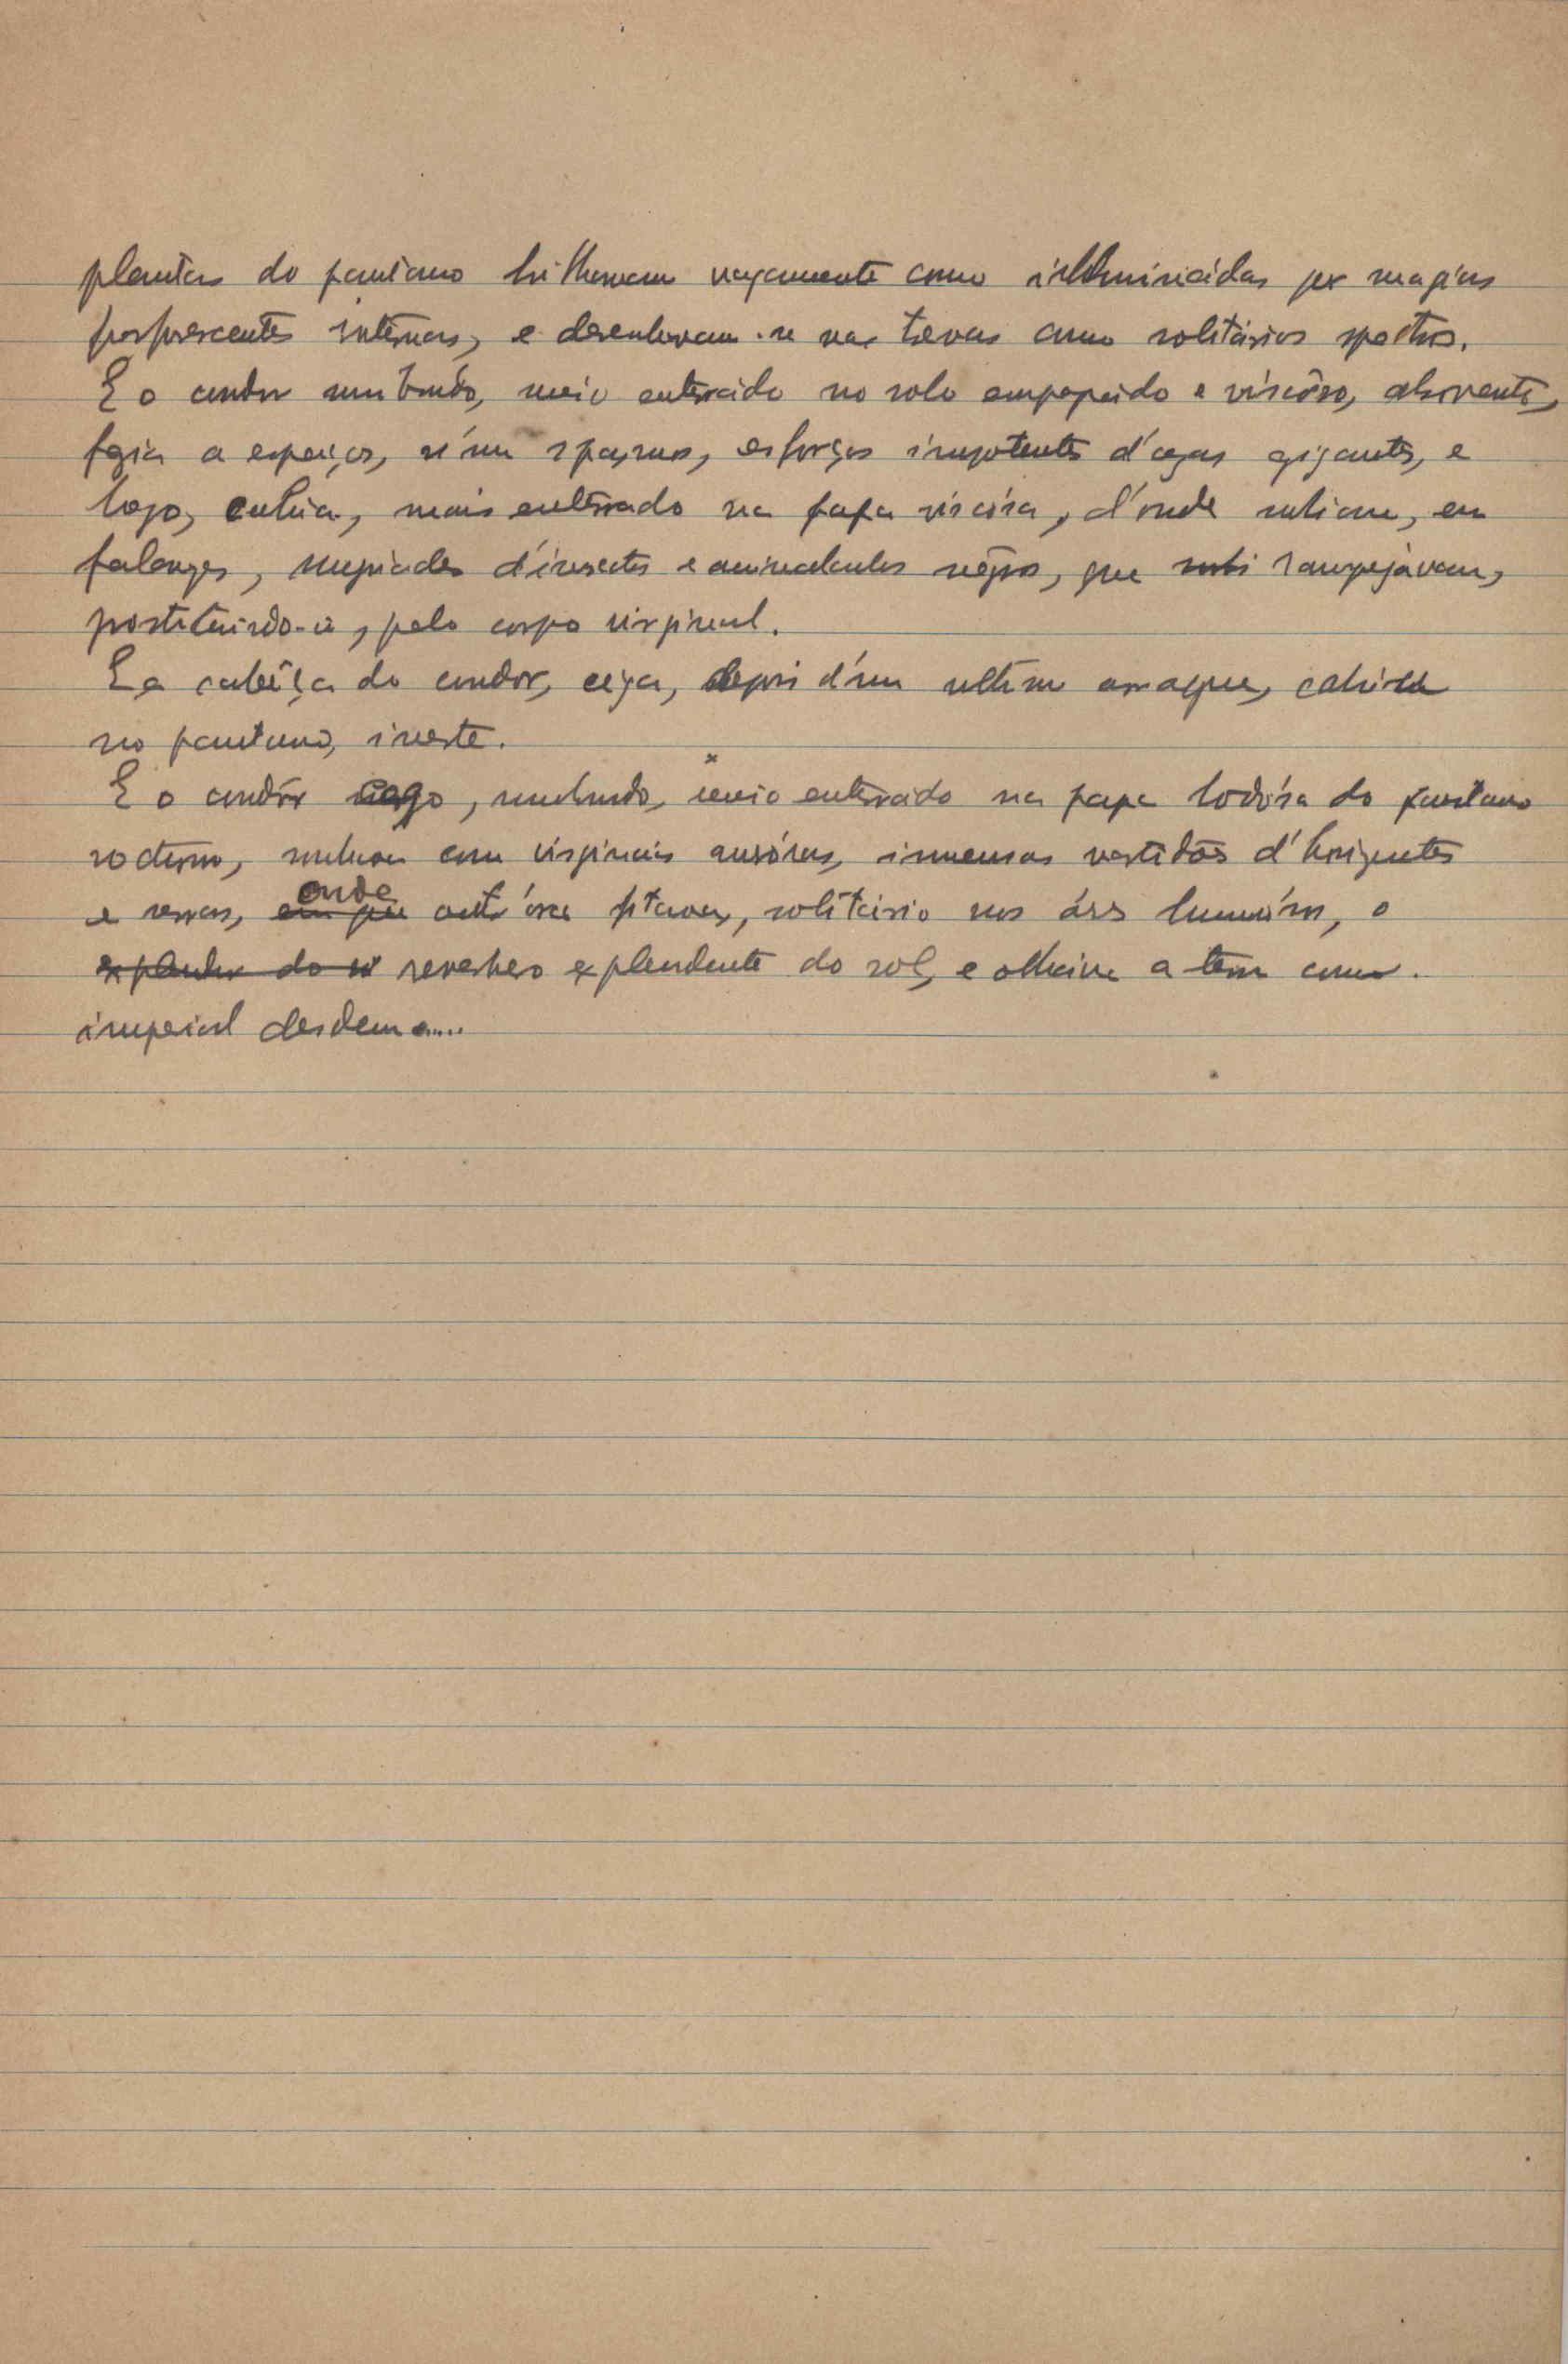 plantas do pantano brilhavam vagamente como illuminádas por magias
fosforescentes intérnas, e desenhavam-se nas trevas como solitários spectros.
E o condor moribundo, meio enterrádo no solo empapádo e viscôso, absorvente,
fazia a espáços, n'um spasmo, esforços impotentes d'azas gigantes, e
logo, cahía, mais enterrado na papa viscósa, d'onde subiam, em
falanges, myriades d'insectos e animalculos negros, que subi rampejávam,
prostituindo-o, pelo corpo virginal.
E a cabêça do condor, cega, depois d'um ultimo arranque, cahira
no pantano, inerte.
E o condôr cego, moribundo, meio enterrádo na papa lodósa do pantano
nocturno, sonhava com virginais auróras, immensas vastidões d'horizontes
e serras, em que onde outr'óra fitava, solitário nos áres luminósos, o
explendor do sol reverbero explendente do sol, e olhava a terra com
imperial desdem.....